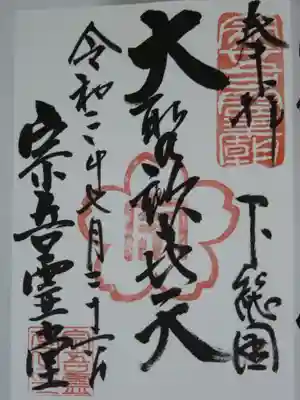 奉拝
下総国
大聖歓喜天
令和二年七月二十六日
宗吾霊堂